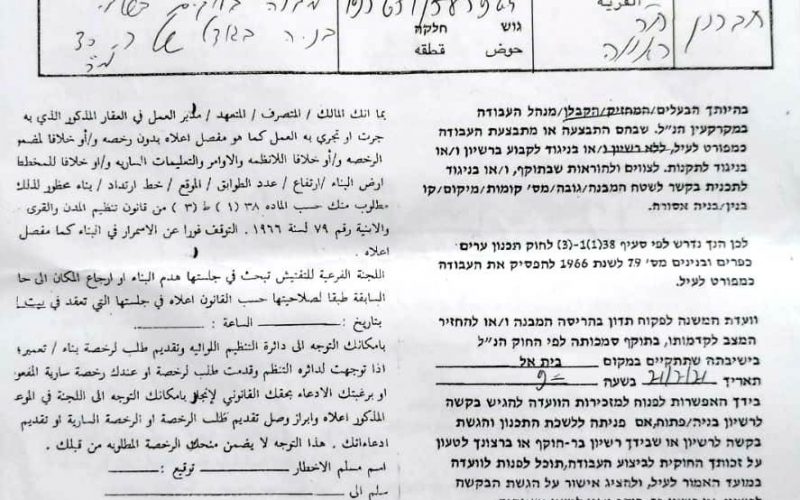 חברון
القرية
גוש חלקה
حوض قطقه
בהיותך הבעלים/המחזיק/הקבלן/מנהל העבודה
במקרקעין הנ"ל. שבהם התבצעה או מתבצעת העבודה
כמפורט לעיל, ללא רשיון ו/או בניגוד לקבוע ברשיון ו/או
בניגוד לתקנות. לצווים ולהוראות שבתוקף, ו/או בניגוד
לתכנית בקשר לשטח המבנה/גובה/מס' קומות/מיקום/קו
בנין/בניה אסורה.
לכן הנך נדרש לפי סעיף 38(1)-(3) לחוק תכנון ערים
כפרים ובנינים מס' 79 לשנת 1966 להפסיק את העבודה
כמפורט לעיל.
וועדת המשנה לפקוח תדון בהריסה המבנה ו/או להחזיר
המצב לקדמותו, בתוקף סמכותה לפי החוק הנ"ל
בישיבתה שתתקיים במקום בית אל
תאריך 21/7/21 בשעה 9
בידך האפשרות לפנות למזכירות הוועדה להגיש בקשה
לרשיון בניה/פתוח, אם פניתה ללשכת התכנון והגשת
בקשה לרשיון או שבידך רשיון בר-תוקף או ברצונך לטעון
על זכותך החוקית לביצוע העבודה, תוכל לפנות לוועדה
במועד האמור לעיל, ולהציג אישור על הגשת הבקשה
بما انك المالك / المتصرف / المتعهد / مدير العمل في العقار المذكور الذي به
جرت او تجري به العمل كما هو مفصل اعلاه بدون رخصه و/أو خلافا لمضمو
الرخصه و/أو خلافا للانظمه والاوامر والتعليمات الساريه و/او خلافا للمخطط
ارض البناء /ارتفاع / عدد الطوابق / الموقع / خط ارتداد / بناء محظور لذلك
مطلوب منك حسب الماده ٣٨ (١) ط (٣) من قانون تنظيم المدن والقرى
والابنية رقم ٧٩ لسنة ١٩٦٦ . التوقف فورا عن الاسمرار في البناء كما مفصل
اعلاه .
اللجنة الفرعية للتفتيش تبحث في جلستها هدم البناء او ارجاع المكان الى حا
السابقة طبقا لصلاحيتها حسب القانون اعلاه في جلستها التي تعقد في بيت ا
بتاريخ : الساعة :
بامكانك التوجه الى دائرة التنظيم اللوائيه وتقديم طلب لرخصة بناء / تعمير ؛
اذا توجهت لدائره التنظم وقدمت طلب لرخصة او عندك رخصة سارية المفعو
او برغبتك الادعاء بحقك القانوني لإنجاز بامكانك التوجه الى اللجنة في الموعد
المذكور اعلاه وابراز وصل تقديم طلب الرخصة او الرخصة السارية او تقديم
ادعاءاتك . هذا التوجه لا يضمن منحك الرخصة المطلوبه من قبلك .
اسم مسلم الاخطار توقيع :
سلم الى